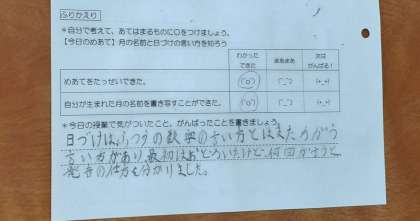 ふりかえり
*自分で考えて、あてはまるものに○をつけましょう。
【今日のめあて】月の名前と日づけの言い方を知ろう
わかった できた まあまあ 次は がんばる!
めあてをたっせいできた。 (^o^) (^_^) (+_+)
自分が生まれた月の名前を書き写すことができた。 (^o^) (^_^) (+_+)
*今日の授業で気がついたこと、がんばったことを書きましょう。
日づけは、ふつうの数字の言い方とはまたちがう
言い方があり、最初はおどろいたけど、何回か言うと
発音の仕方も分かりました。